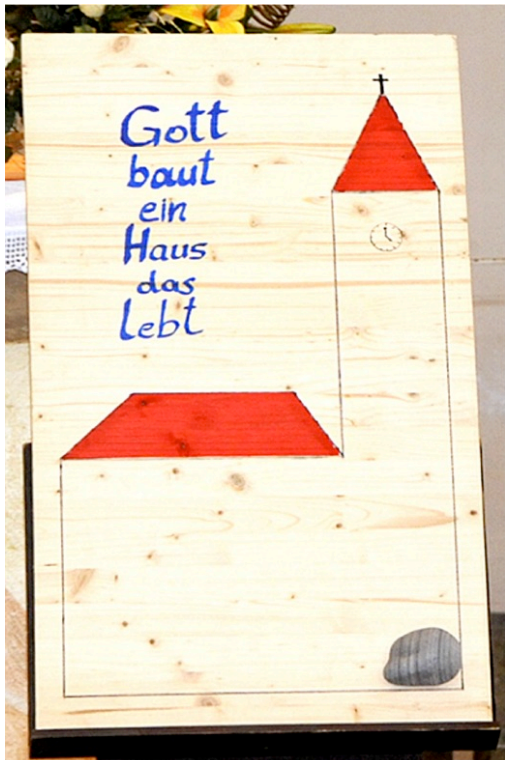 Gott
baut
ein
Haus
das
lebt